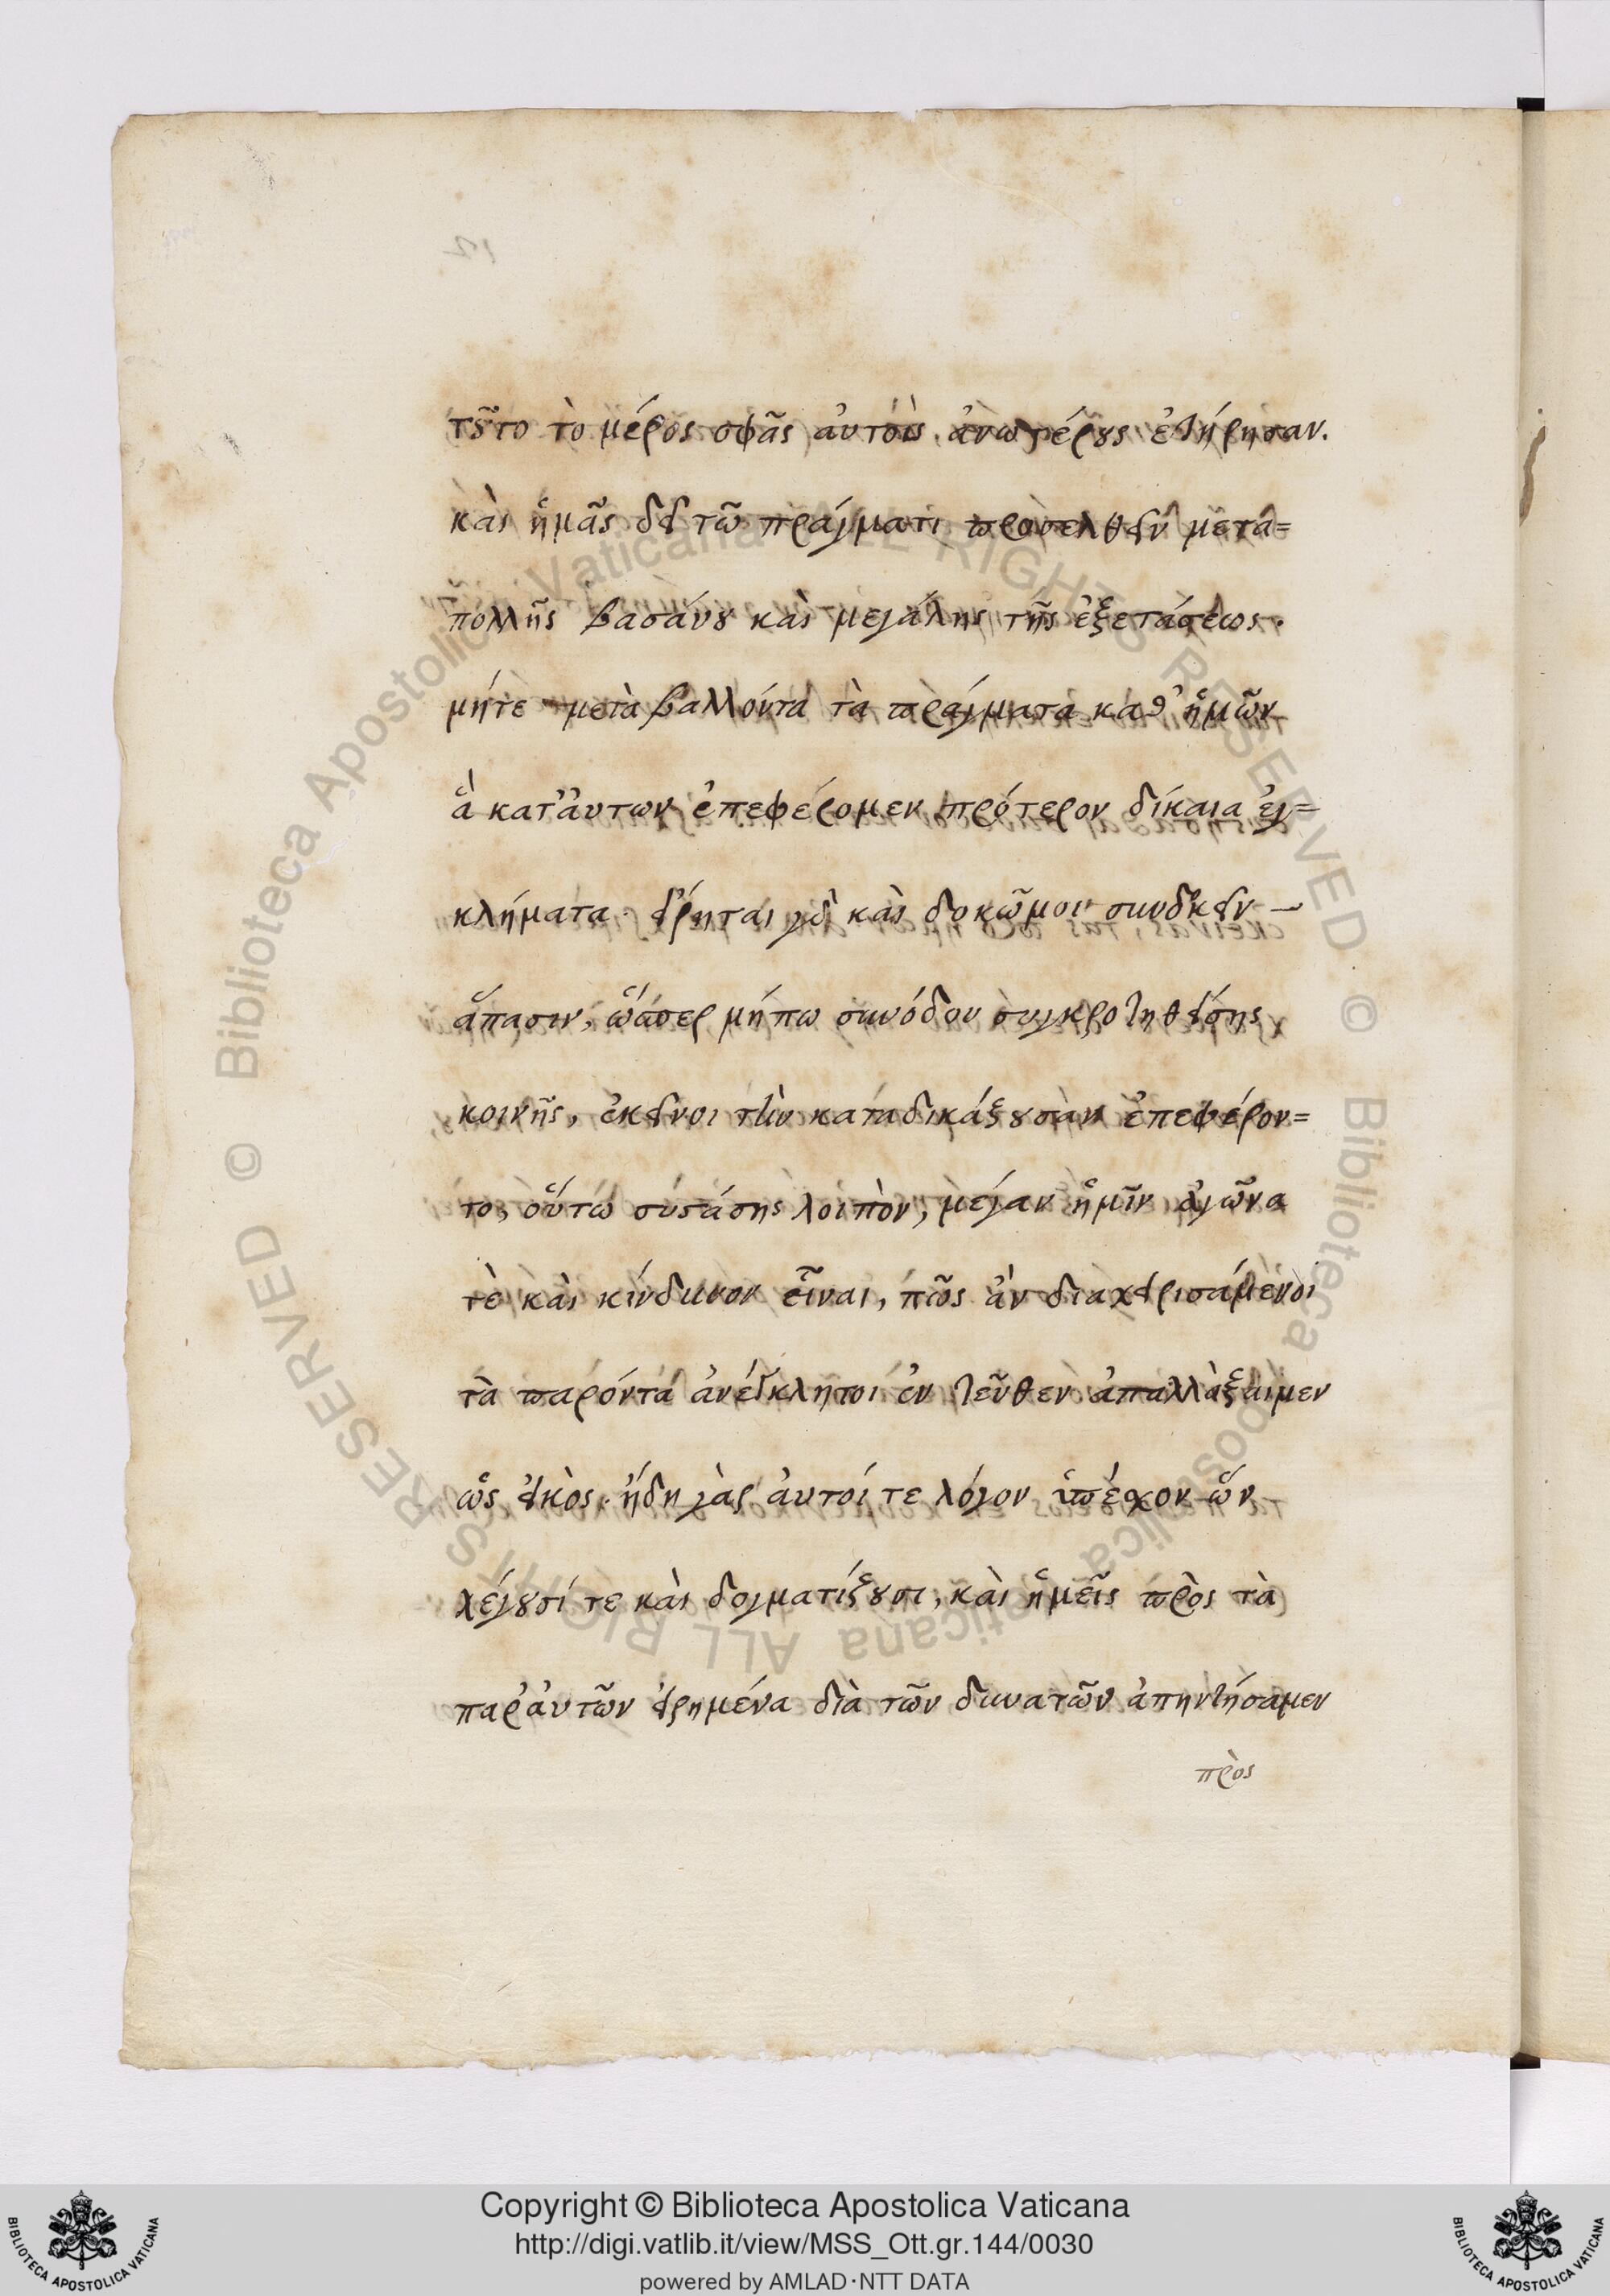 τοῦτο τὸ μέρος σφᾶς αὐτοὺς ἀνωτέρους ἐτήρησαν.
καὶ ἡμᾶς δεῖ τῶ πράγματι προσελθεῖν μετὰ=
πολλῆς βασάνου καὶ μεγάλης τῆς ἐξετάσεως.
μήτε μετὰ βαλλοντα τὰ πράγματα καθ' ἡμῶν
ἃ κατ' ἀυτων ἐπεφέρομεν πρότερον δίκαια ἐγ=
κλήματα. εἴρηται γὰρ καὶ δοκῶμοι συνδοκεῖν –
ἅπασιν, ὥσπερ μήπω συνόδου συγκροτηθείσης
κοινῆς, ἐκεῖνοι τὴν καταδικάζουσαν ἐπεφέρον=
το, οὕτω συστάσης λοιπὸν, μέγαν ἡμῖν ἀγῶνα
τὲ καὶ κίνδυνον εἶναι, πῶς ἀν διαχειρισάμενοι
τὰ παρόντα ἀνέγκλητοι ἐν τεῦθεν ἀπαλλάξαιμεν
ὡς εἰκὸς. ἤδη γὰρ ἀυτοί τε λόγον ὑπέσχον ὧν
λέγουσί τε καὶ δογματίζουσι, καὶ ἡμεῖς πρὸς τὰ
παρ' ἀυτῶν εἰρημένα διὰ τῶν δυνατῶν ἀπηντήσαμεν
πρὸς
Copyright © Biblioteca Apostolica Vaticana
http://digi.vatlib.it/view/MSS_Ott.gr.144/0030
powered by AMLAD·NTT DATA